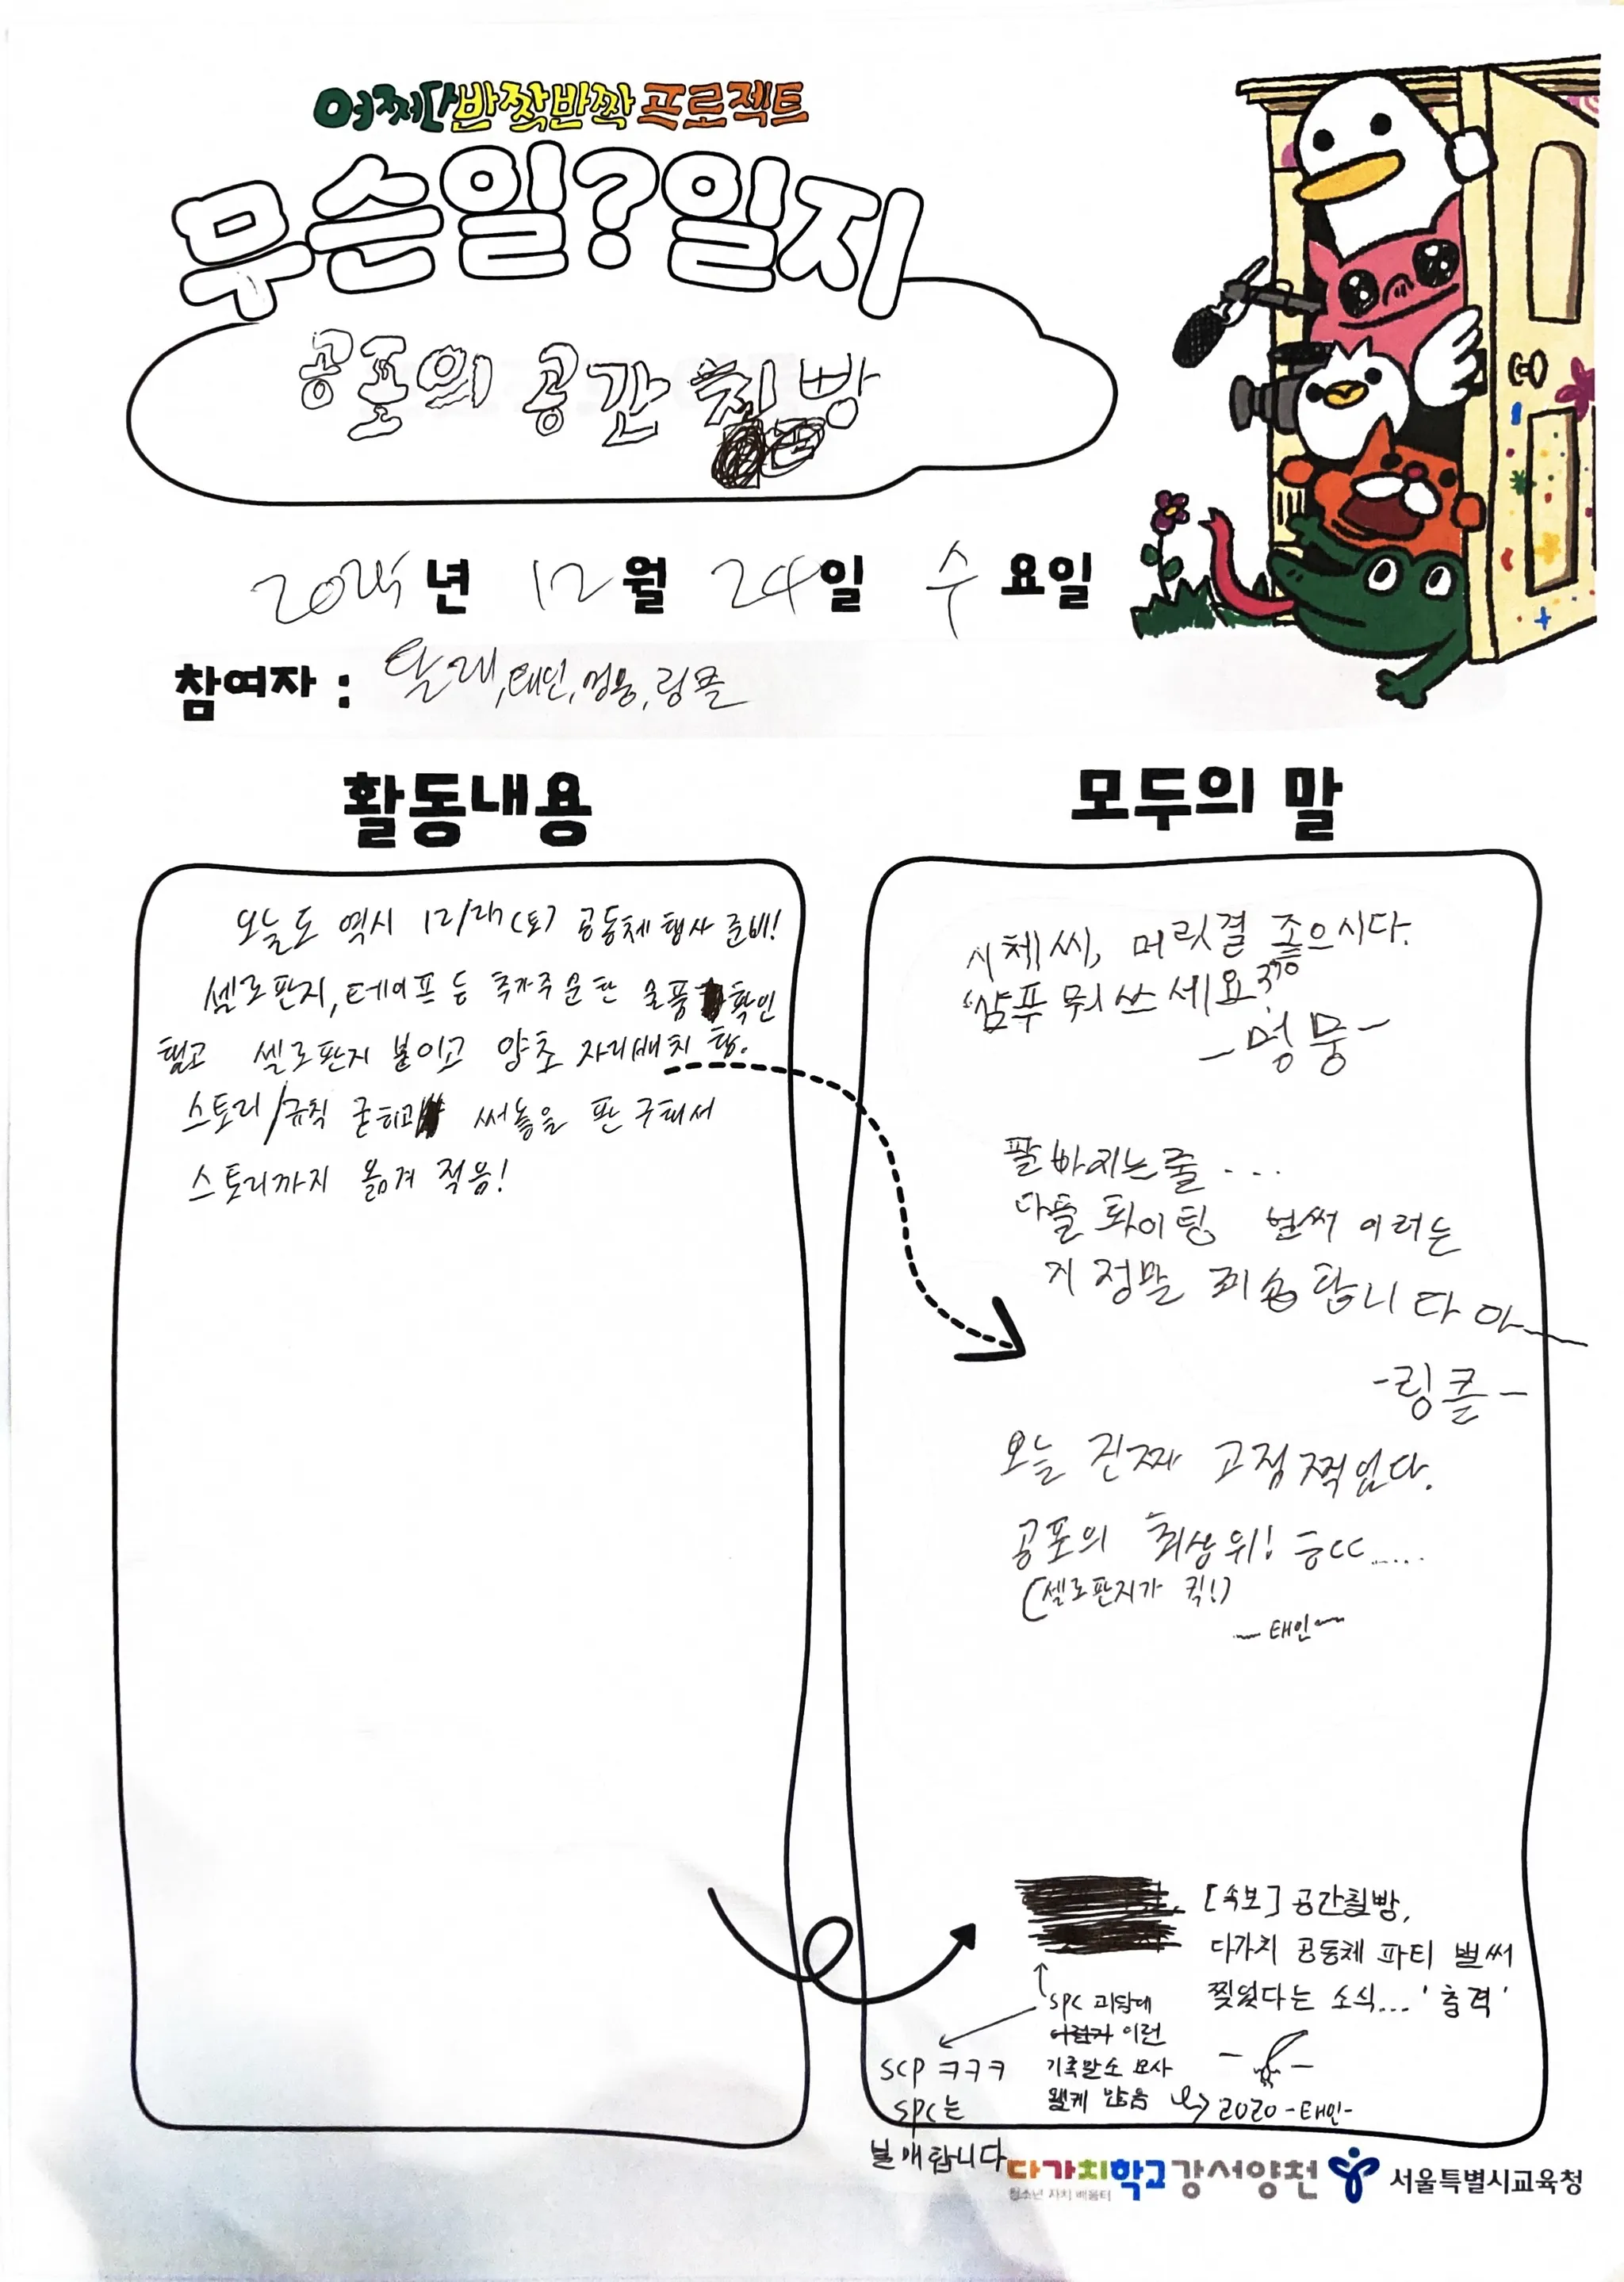 어쩌다반짝반짝프로젝트
무슨일?일지
공포의 공간 칠빵
2025년 12월 24일 수요일
참여자 : 달래, 태인, 멍뭉, 링클
활동내용
오늘도 역시 12/27(토) 공동체 행사 준비!
셀로판지, 테이프 등 추가주문한 물품 확인
했고 셀로판지 붙이고 양초 자리배치 함.
스토리/규칙 굳히고 써놓을 판 구해서
스토리까지 옮겨 적음!
모두의 말
시체씨, 머릿결 좋으시다.
샴푸 뭐 쓰세요?
-멍뭉-
팔 빠지는줄...
다들 화이팅 벌써 이러는
지 정말 죄송합니다 아
-링클-
오늘 진짜 고점 찍었다.
공포의 최상위! ㅎㄷㄷ.....
(셀로판지가 킥!)
-태인-
[속보] 공간칠빵,
다가치 공동체 파티 벌써
찢었다는 소식... '충격'
2020 -태인-
SPC 괴담에
이런
기록말소 묘사
많음
SCP ㅋㅋㅋ
SPC는
불매합니다
다가치학교강서양천
청소년 자치 배움터
서울특별시교육청